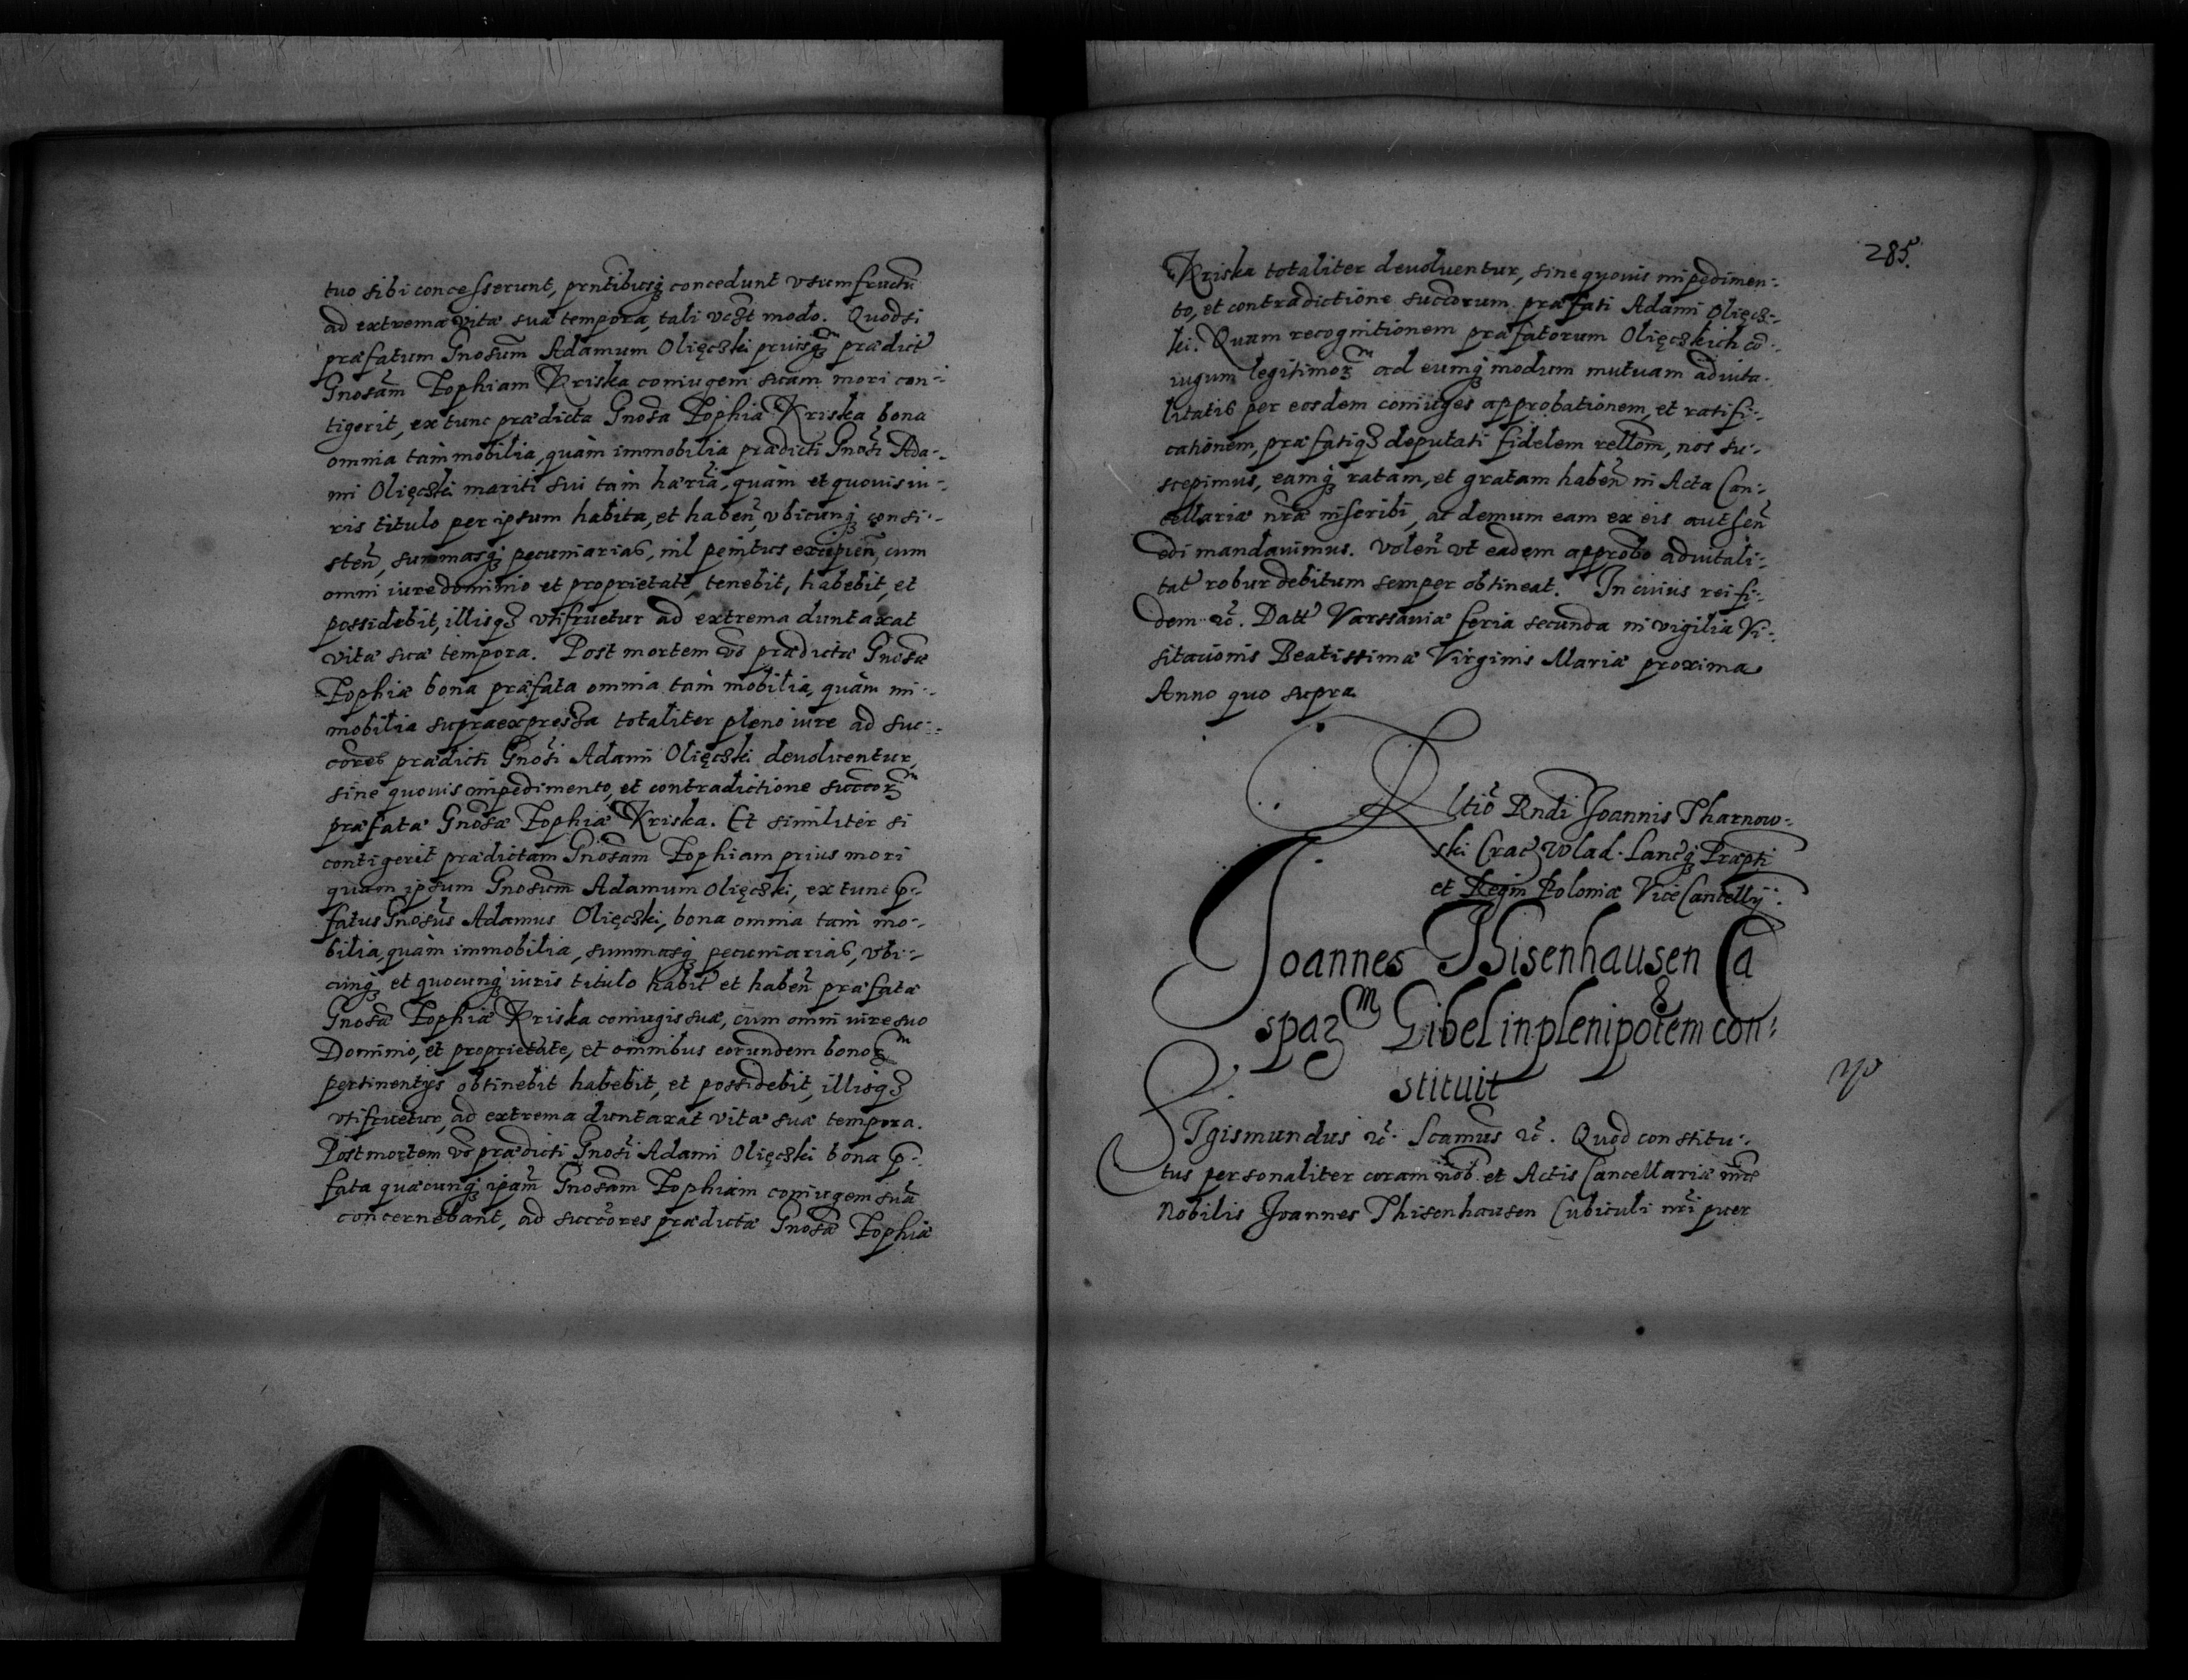 tuo sibi concesserunt, prntibusq̃ concedunt vsumfructũ
ad extrema vitæ suæ tempora, tali vcȝt modo. Quodsi
præfatum Gnosum̃ Adamum Olięcȝki priusq̃m prædict̃
Gnosam̃ Zophiam Kriska coniugem suam mori con-
tigerit, ex tunc prædicta Gnosã Zophia Kriska bona
omnia tam mobilia, quàm immobilia prædicti Gnosĩ Ada-
mi Olięcȝki mariti sui tam hæriã, quàm et quouis iu-
ris titulo per ipsum habita, et habeñ, vbicunq̃ consi-
steñ, summasq̃ pecuniarias, nil penitus excipieñ, cum
omni iure dominio et proprietate, tenebit, habebit, et
possidebit, illisqȝ vtifruetur ad extrema duntaxat
vitæ suæ tempora. Post mortem võ prædictæ Gnosæ
Zophiæ bona præfata omnia tam mobilia, quàm im-
mobilia supraexpressa totaliter pleno iure ad suc-
cores prædicti Gnosĩ Adami Olięcȝki deuoluentur,
sine quouis impedimento, et contradictione succorȝm
præfatæ Gnosæ Zophiæ Kriska. Et similiter si
contigerit prædictam Gnosam Zophiam prius mori
quam ipsum Gnosum̃ Adamum Olięcȝki, ex tunc p̃-
fatus Gnosus̃ Adamus Olięcȝki, bona omnia tam mo-
bilia, quàm immobilia, summasq̃ pecuniarias, vbi-
cunq̃ et quocunq̃ iuris titulo habit̃ et habeñ præfatæ
Gnosæ Zophiæ Kriska coniugis suæ, cum omni iure suo
Dominio, et proprietate, et omnibus eorundem bonorȝm
pertinentijs obtinebit habebit, et possidebit, illisqȝ
vtifruetur, ad extrema duntaxat vitæ suæ tempora.
Post mortem võ prædicti Gnosĩ Adami Olięcȝki bona p̃-
fata quæcunq̃ ipam̃ Gnosam̃ Zophiam coniugem suã
concernebant, ad succores prædictæ Gnosæ Zophiæ
285.
Kriska totaliter deuoluentur, sine quouis impedimen-
to, et contradictione succorum præfati Adami Olięcȝ-
ki. Quam recognitionem præfatorum Olięcȝkich cõ-
iugum legitimorȝm ad eumq̃ modum mutuam aduita-
litatis per eosdem coniuges approbationem, et ratifi-
cationem, præfatiqȝ deputati fidelem rellom̃, nos su-
scepimus, eamq̃ ratam, et gratam habeñ in Acta Can-
cellariæ nrã inscribi, ac demum eam ex eis autheñ
edi mandauimus. Voleñ vt eadem approbo aduitali-
tat̃ robur debitum semper obtineat. In cuius rei fi-
dem ꝛc̃. Datt̃ Varssauiæ feria secunda in vigilia Vi-
sitacionis Beatissimæ Virginis Mariæ proxima
Anno quo supra
Rltiõ Rndi Joannis Tharnow-
ski Crac̃ Wlad. Lancq̃ Præpti
et Regin Poloniæ ViceCancellij.
Joannes Thisenhausen Ca
sparȝm Gibel in plenipotem̃ con-
stituit
SIgismundus ꝛc̃. Scamus̃ ꝛc̃. Quod constitu-
tus personaliter coram nob̃ et Actis Cancellariæ nrẽ
Nobilis Joannes Thisenhausen Cubiculi nrĩ puer